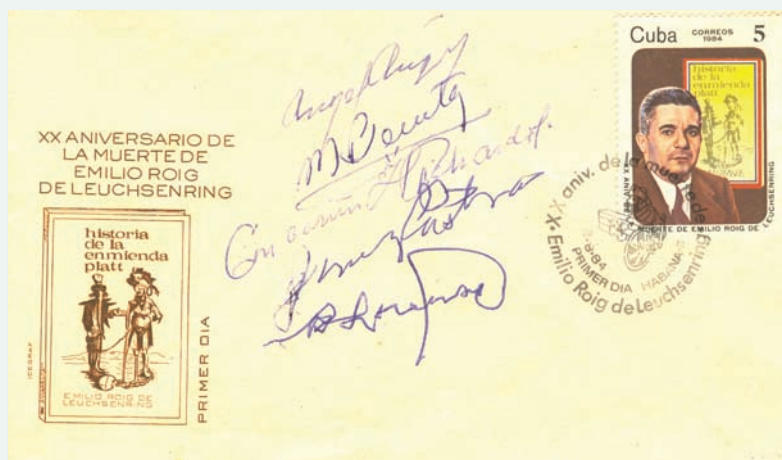 XX ANIVERSARIO DE
LA MUERTE DE
EMILIO ROIG
DE LEUCHSENRING
historia
de la
enmienda
platt
EMILIO ROIG DE
LEUCHSENRING
ICEGRAF
PRIMER DIA
Con cariño
Cuba CORREOS 1984 5
historia
de la
enmienda
platt
XX ANIV. DE LA
MUERTE DE EMILIO ROIG DE
LEUCHSENRING
XX aniv. de la muerte de
Emilio Roig de Leuchsenring
8-84
PRIMER DIA HABANA